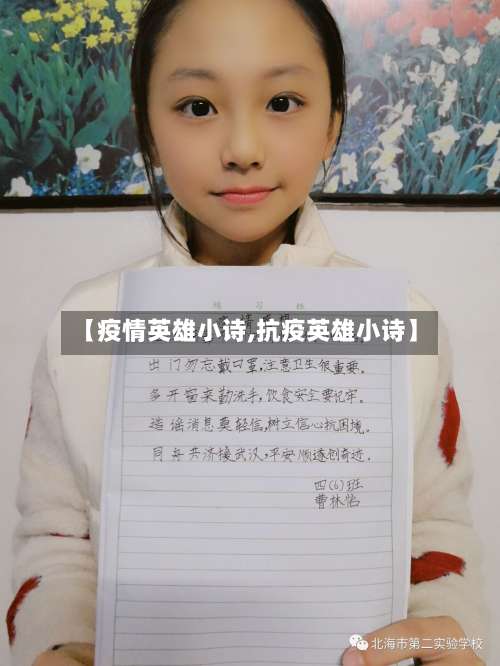 练习极
【疫情英雄小诗,抗疫英雄小诗】
出门勿忘戴口罩,注意卫生很重要。
多开窗来勤洗手,饮食安全要记牢。
造谣消息莫轻信,树立信心抗困境。
同舟共济援武汉,平安顺遂创奇迹。
四(6)班
曹林怡
北海市第二实验学校